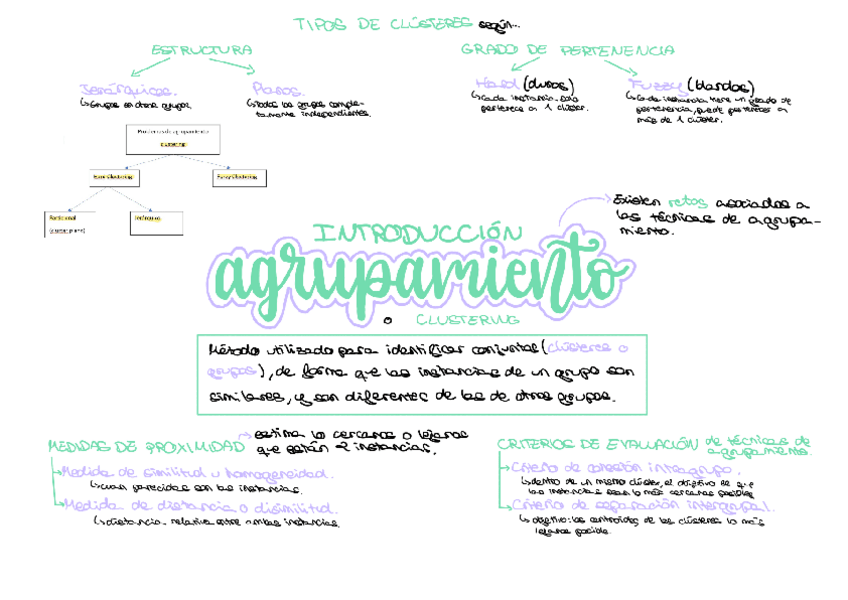 TIPOS DE CLÚSTERES según...
ESTRUCTURA
Jerárquicos.
↳Grupos en otros grupos.
Planos.
↳Todos los grupos comple-
tamente independientes.
GRADO DE PERTENENCIA
Hard (duros)
↳Cada instancia solo
pertenece a 1 clúster.
Fuzzy (blandos)
↳Cada instancia tiene un grado de
pertenencia, puede pertenecer a
más de 1 clúster.
Problemas de agrupamiento
clustering
Hard Clustering
Fuzzy Clustering
Particional
Jerárquico
Existen retos asociados a
las técnicas de agrupa-
miento.
INTRODUCCIÓN
agrupamiento
o CLUSTERING
Método utilizado para identificar conjuntos (clústeres o
grupos), de forma que las instancias de un grupo son
similares, y son diferentes de las de otros grupos.
MEDIDAS DE PROXIMIDAD
estima lo cercanas o lejanas
que están 2 instancias.
Medida de similitud u homogeneidad.
↳cuan parecidas son las instancias.
Medida de distancia o disimilitud.
↳distancia relativa entre ambas instancias.
CRITERIOS DE EVALUACIÓN de técnicas de
agrupamiento.
Criterio de cohesión intragrupo.
↳dentro de un mismo clúster, el objetivo es que
las instancias sean lo más cercanas posibles
Criterio de separación intergrupal.
↳objetivo: los centroides de los clústeres lo más
lejanos posible.